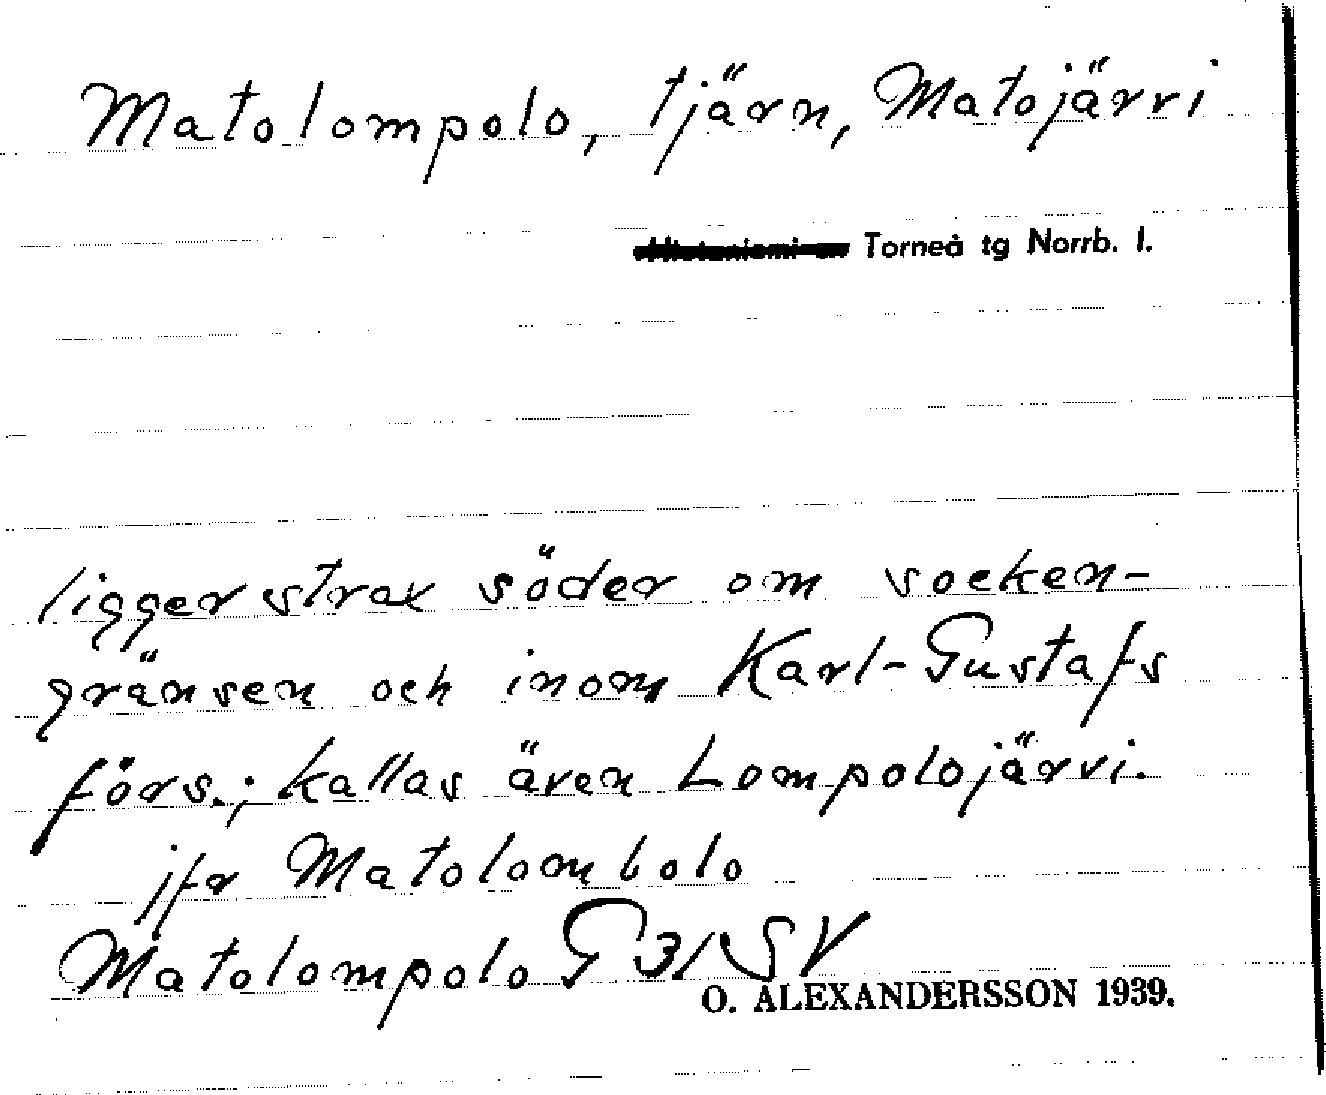 Matolompolo, tjärn, Matojärvi
Torneå tg Norrb. l.
ligger strax söder om socken-
gränsen och inom Karl-Gustafs
förs.; kallas även Lompolojärvi.
jfr Matoloombolo
Matolompolo G 31 SV
O. ALEXANDERSSON 1939.